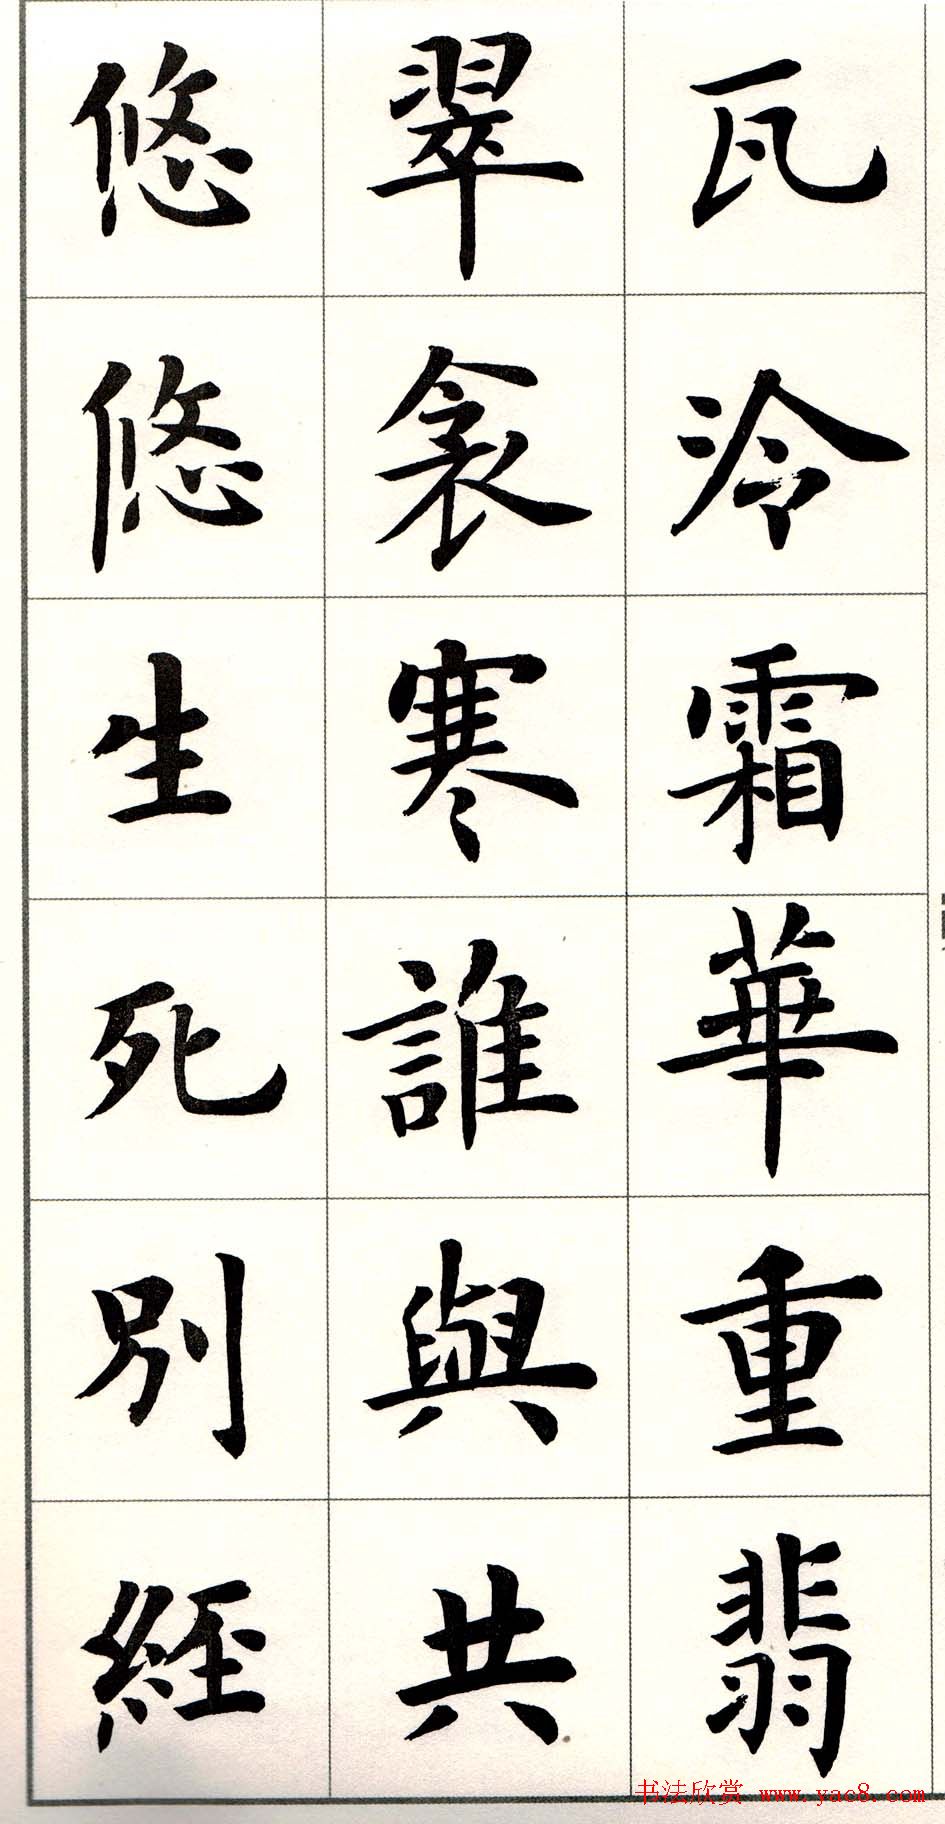 瓦冷霜華重翡
翠衾寒誰與共
悠悠生死別經
书法欣赏 www.yac8.com